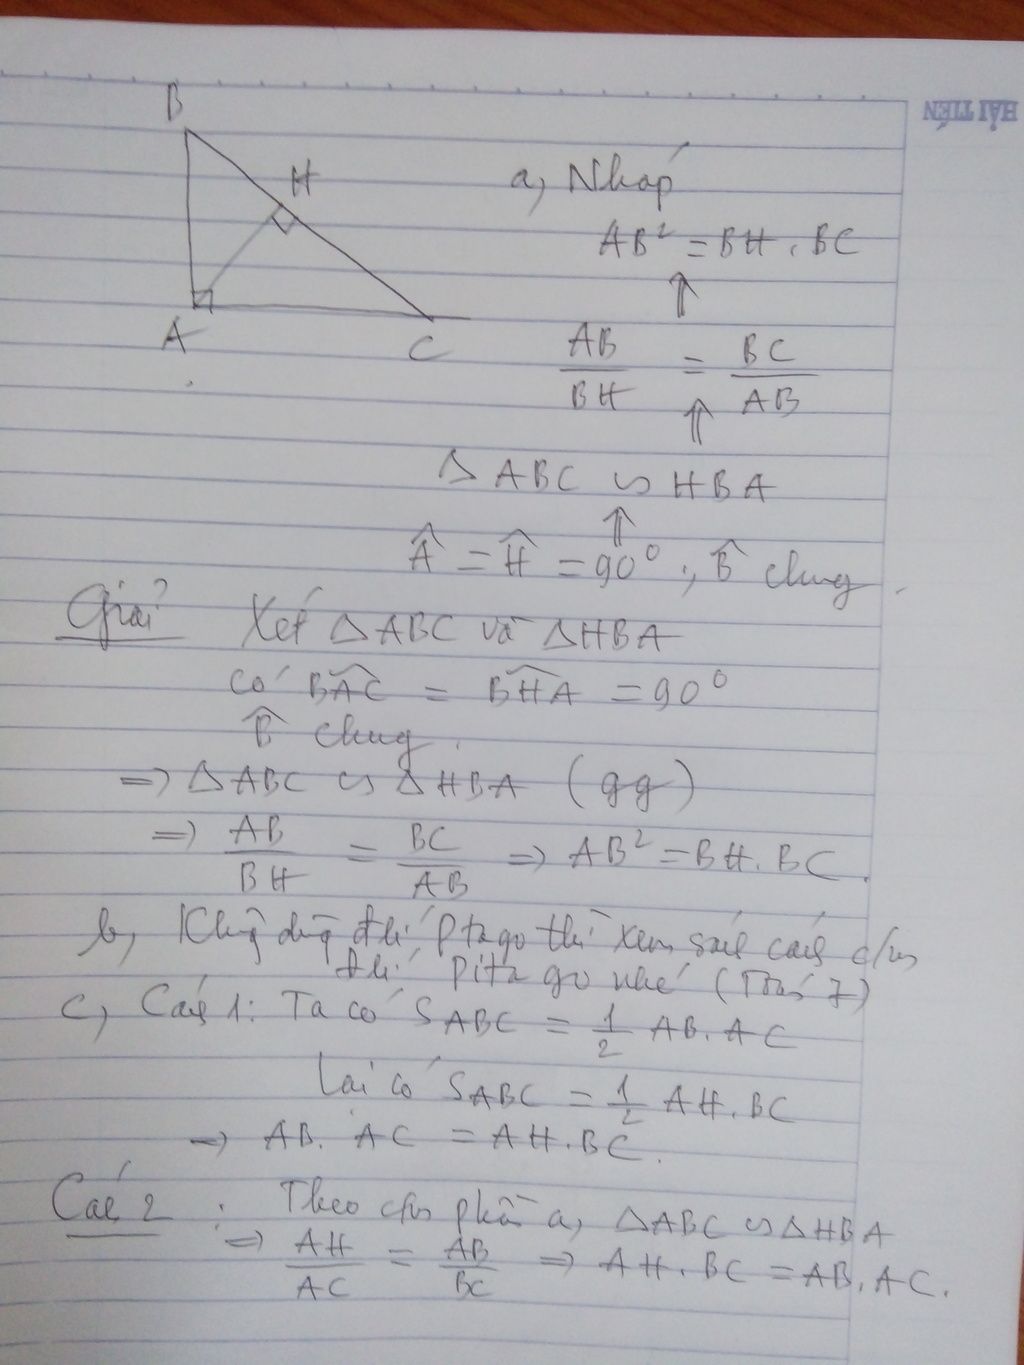 HẢI TIẾN
B
H
A
C
a, Nháp
AB² = BH . BC
⇑
AB/BH = BC/AB
⇑
Δ ABC ∽ HBA
⇑
Â = Ĥ = 90°, B̂ chung
Giải Xét ΔABC và ΔHBA
Có BÂC = BĤA = 90°
B̂ chung
=> Δ ABC ∽ Δ HBA (gg)
=> AB/BH = BC/AB => AB² = BH. BC.
b, Khg dùg đlí Ptago thì xem sách cách c/m
đlí Pitago nhé (Toán 7)
c, Cách 1: Ta có S ABC = 1/2 AB. AC
Lại có S ABC = 1/2 AH. BC
=> AB. AC = AH. BC.
Cách 2 : Theo c/m phần a, ΔABC ∽ ΔHBA
=> AH/AC = AB/BC => AH. BC = AB. AC.